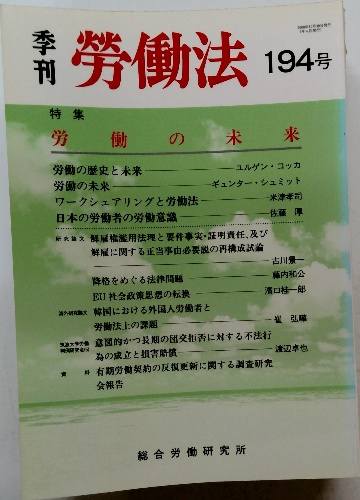 季刊 勞働法 194号
特集
労働の未来
労働の歴史と未来 ユルゲン・コッカ
労働の未来 ギュンター・シュミット
ワークシェアリングと労働法 米津孝司
日本の労働者の労働意識 佐藤 厚
研究論文 解雇権濫用法理と要件事実・証明責任、及び
解雇に関する正当事由必要説の再構成試論
古川景一
降格をめぐる法律問題 藤内和公
EU社会政策思想の転換 濱口桂一郎
海外研究論文 韓国における外国人労働者と
労働法上の課題 崔 弘曄
意図的かつ長期の団交拒否に対する不法行
為の成立と損害賠償 渡辺卓也
資料 有期労働契約の反復更新に関する調査研究
会報告
総合労働研究所